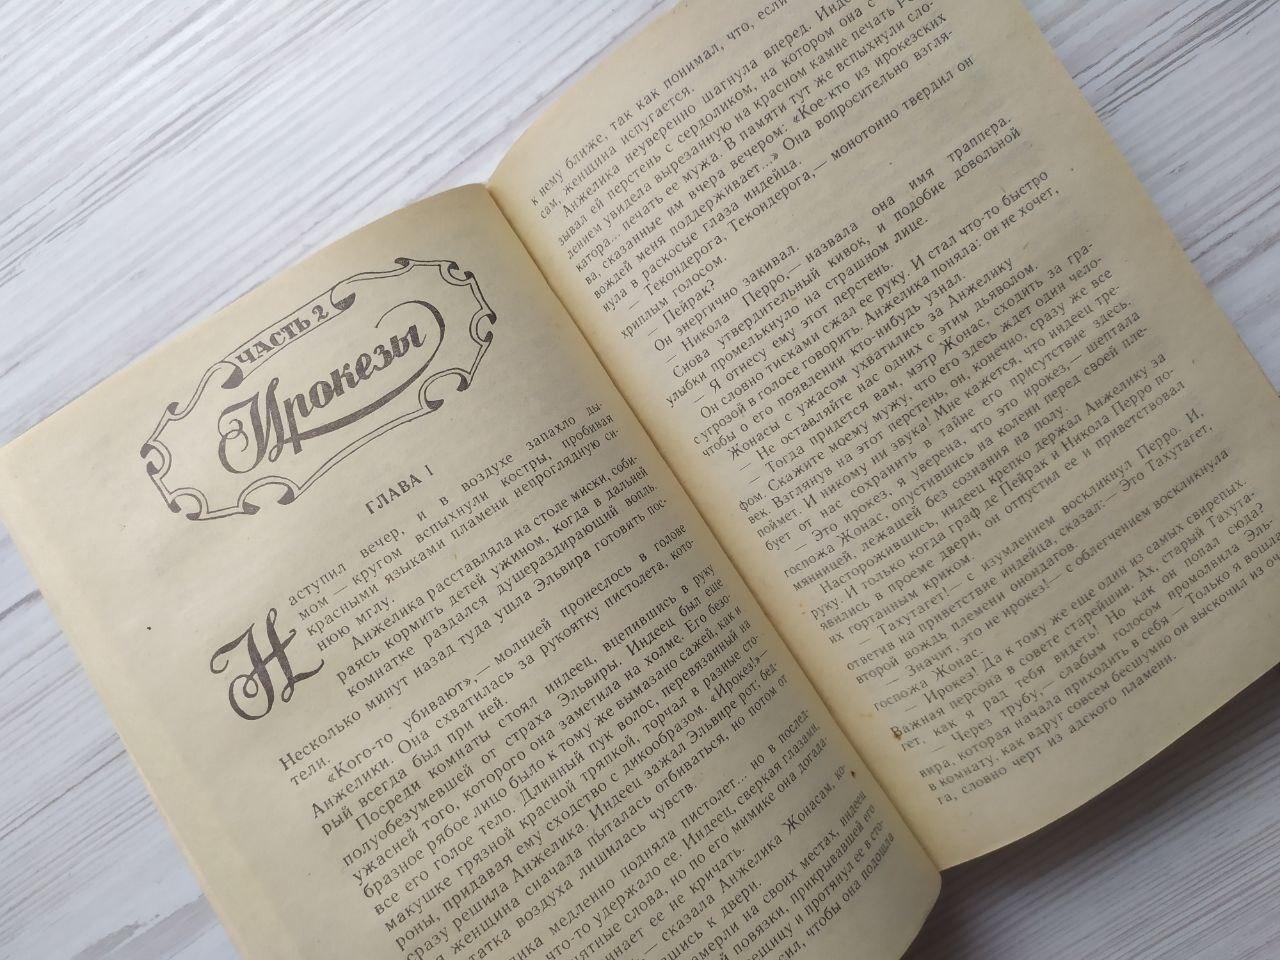 ЧАСТЬ 2
Ирокезы
ГЛАВА 1
Наступил вечер, и в воздухе запахло ды-
мом — кругом вспыхнули костры, пробивая
красными языками пламени непроглядную си-
нюю мглу.
Анжелика расставляла на столе миски, соби-
раясь кормить детей ужином, когда в дальней
комнатке раздался душераздирающий вопль.
Несколько минут назад туда ушла Эльвира готовить пос-
тели.
«Кого-то убивают», — молнией пронеслось в голове
Анжелики. Она схватилась за рукоятку пистолета, кото-
рый всегда был при ней.
Посреди комнаты стоял индеец, вцепившись в руку
полуобезумевшей от страха Эльвиры. Индеец был еще
ужасней того, которого она заметила на холме. Его безо-
бразное рябое лицо было к тому же вымазано сажей, как и
все его голое тело. Длинный пук волос, перевязанный на
макушке грязной красной тряпкой, торчал в разные сто-
роны, придавая ему сходство с дикобразом. «Ирокез!»—
сразу решила Анжелика. Индеец зажал Эльвире рот, бед-
я женщина сначала пыталась отбиваться, но потом от
татка воздуха лишилась чувств.
лика медленно подняла пистолет... но в послед-
что-то удержало ее. Индеец, сверкая глазами,
ятные слова, но по его мимике она догада
инает ее не кричать.
— сказала Анжелика Жонасам, ко-
вшись к двери.
мерли на своих местах, индеец
й повязки, прикрывавшей его
вещицу и протянул ее в сто-
сил, чтобы она подошла
к нему ближе, так как понимал, что, если
сам, женщина испугается.
Анжелика неуверенно шагнула вперед. Инде
зывал ей перстень с сердоликом, на котором она с
дением увидела вырезанную на красном камне печать Р
катора... печать ее мужа. В памяти тут же вспыхнули сло-
ва, сказанные им вчера вечером: «Кое-кто из ирокезских
вождей меня поддерживает...» Она вопросительно взгля-
нула в раскосые глаза индейца.
— Текондерога, Текондерога,— монотонно твердил он
хриплым голосом.
— Пейрак?
Он энергично закивал.
— Никола Перро,— назвала она имя траппера.
Снова утвердительный кивок, и подобие довольной
улыбки промелькнуло на страшном лице.
— Я отнесу ему этот перстень.
Он словно тисками сжал ее руку. И стал что-то быстро
с угрозой в голосе говорить. Анжелика поняла: он не хочет,
чтобы о его появлении кто-нибудь узнал.
Жонасы с ужасом ухватились за Анжелику
— Не оставляйте нас одних с этим дьяволом.
— Тогда придется вам, мэтр Жонас, сходить за гра-
фом. Скажите моему мужу, что его здесь ждет один чело-
век. Взглянув на этот перстень, он, конечно, сразу же все
поймет. И никому ни звука! Мне кажется, что индеец тре-
бует от нас сохранить в тайне его присутствие здесь.
— Это ирокез, я уверена, что это ирокез,— шептала
госпожа Жонас, опустившись на колени перед своей пле-
мянницей, лежащей без сознания на полу.
Насторожившись, индеец крепко держал Анжелику за
руку. И только когда граф де Пейрак и Никола Перро по-
явились в проеме двери, он отпустил ее и приветствовал
их гортанным криком.
— Тахутагет!— с изумлением воскликнул Перро. И,
ответив на приветствие индейца, сказал:— Это Тахутагет,
второй вождь племени онондагов.
— Значит, это не ирокез!— с облегчением воскликнула
госпожа Жонас.
— Ирокез! Да к тому же еще один из самых свирепых.
Важная персона в совете старейшин. Ах, старый Тахута-
гет, как я рад тебя видеть! Но как он попал сюда?
— Через трубу,— слабым голосом промолвила Эль-
вира, которая начала приходить в себя — Только я вошла
в комнату, как вдруг совсем бесшумно он выскочил из о
га, словно черт из адского пламени.